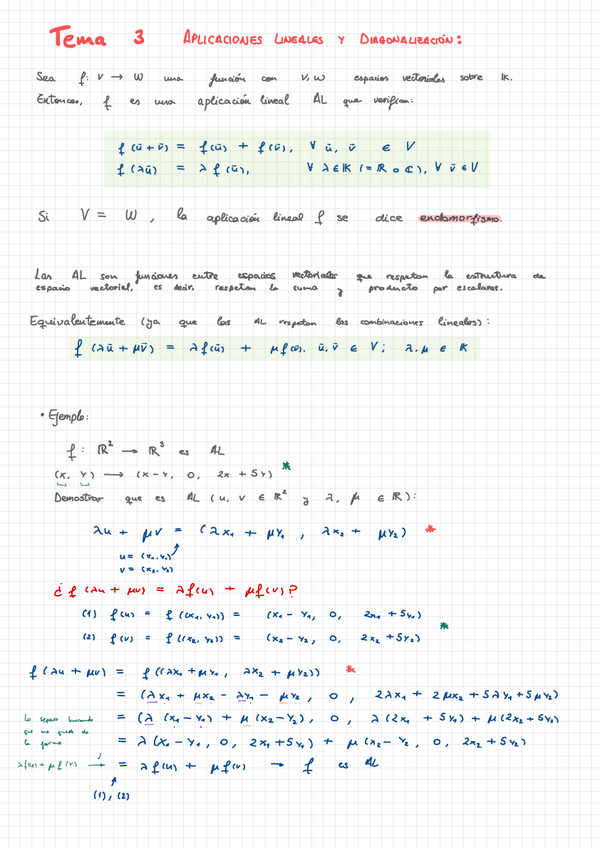 Tema 3 APLICACIONES LINEALES Y DIAGONALIZACIÓN:
Sea f: V → W una función con V, W espacios vectoriales sobre K.
Entonces, f es una aplicación lineal AL que verifican:
f (ū + v̄) = f(ū) + f(v̄), ∀ ū, v̄ ∈ V
f (λū) = λ f(ū), ∀ λ ∈ K (= ℝ o ℂ), ∀ v̄ ∈ V
Si V = W, la aplicación lineal f se dice endomorfismo.
Las AL son funciones entre espacios vectoriales que respetan la estructura de
espacio vectorial, es decir, respetan la suma y producto por escalares.
Equivalentemente (ya que las AL respetan las combinaciones lineales):
f (λū + μv̄) = λf(ū) + μf(v̄). ū, v̄ ∈ V; λ, μ ∈ K
• Ejemplo:
f: ℝ² → ℝ³ es AL
(x, y) → (x - y, 0, 2x + 5y) *
Demostrar que es AL (u, v ∈ ℝ² y λ, μ ∈ ℝ):
λu + μv = (λx₁ + μy₁, λx₂ + μy₂) *
u = (x₁, y₁)
v = (x₂, y₂)
¿ f (λu + μv) = λf(u) + μf(v)?
(1) f(u) = f((x₁, y₁)) = (x₁ - y₁, 0, 2x₁ + 5y₁)
(2) f(v) = f((x₂, y₂)) = (x₂ - y₂, 0, 2x₂ + 5y₂) *
f (λu + μv) = f((λx₁ + μy₁, λx₂ + μy₂)) *
= (λx₁ + μx₂ - λy₁ - μy₂, 0, 2λx₁ + 2μx₂ + 5λy₁ + 5μy₂)
Lo separo buscando
= (λ (x₁ - y₁) + μ (x₂ - y₂), 0, λ(2x₁ + 5y₁) + μ(2x₂ + 5y₂)
que me quede de
la forma
= λ (x₁ - y₁, 0, 2x₁ + 5y₁) + μ (x₂ - y₂, 0, 2x₂ + 5y₂)
λf(u) + μf(v) → = λf(u) + μf(v) → f es AL
(1), (2)